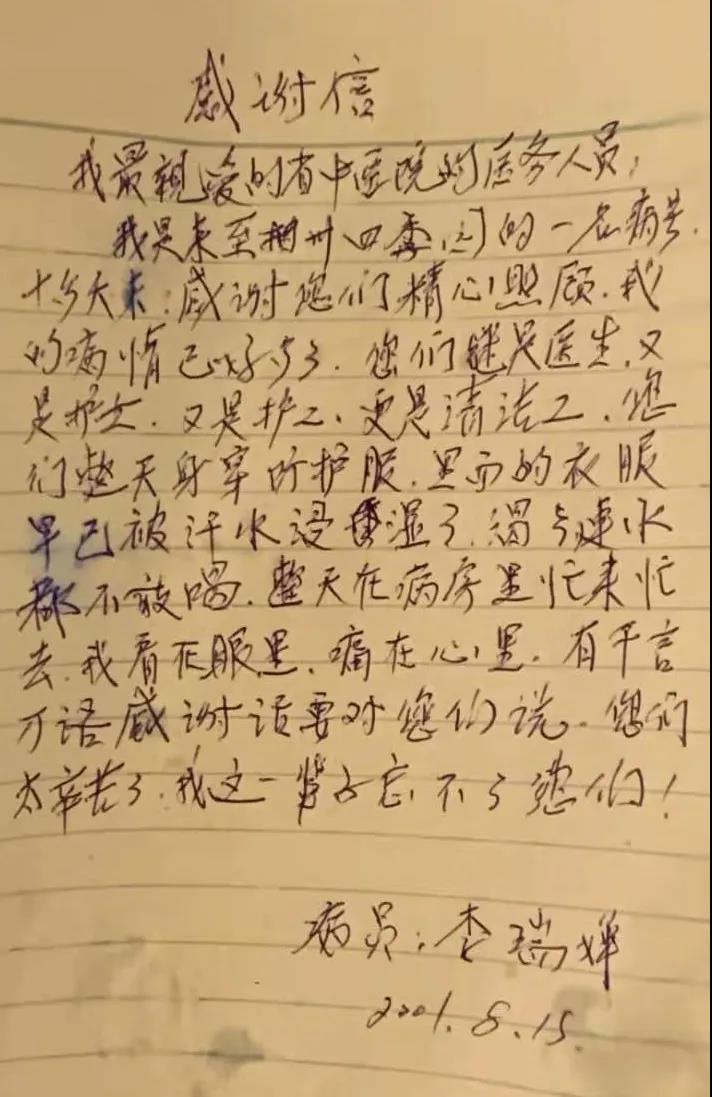 感谢信
我最親爱的省中医院的医务人员：
我是来至柳州四季园的一名病号.
十多天来：感谢您们精心照顾.我
的病情已好多了.您们既是医生.又
是护士.又是护工、更是清洁工.您
们整天身穿防护服.里面的衣服
早已被汗水浸湿了.渴了连水
都不敢喝.整天在病房里忙来忙
去.我看在眼里、痛在心里.有千言
万语感谢话要对您们说.您们
太辛苦了.我这一辈子忘不了您们！
病员：李瑞
2001.8.15.